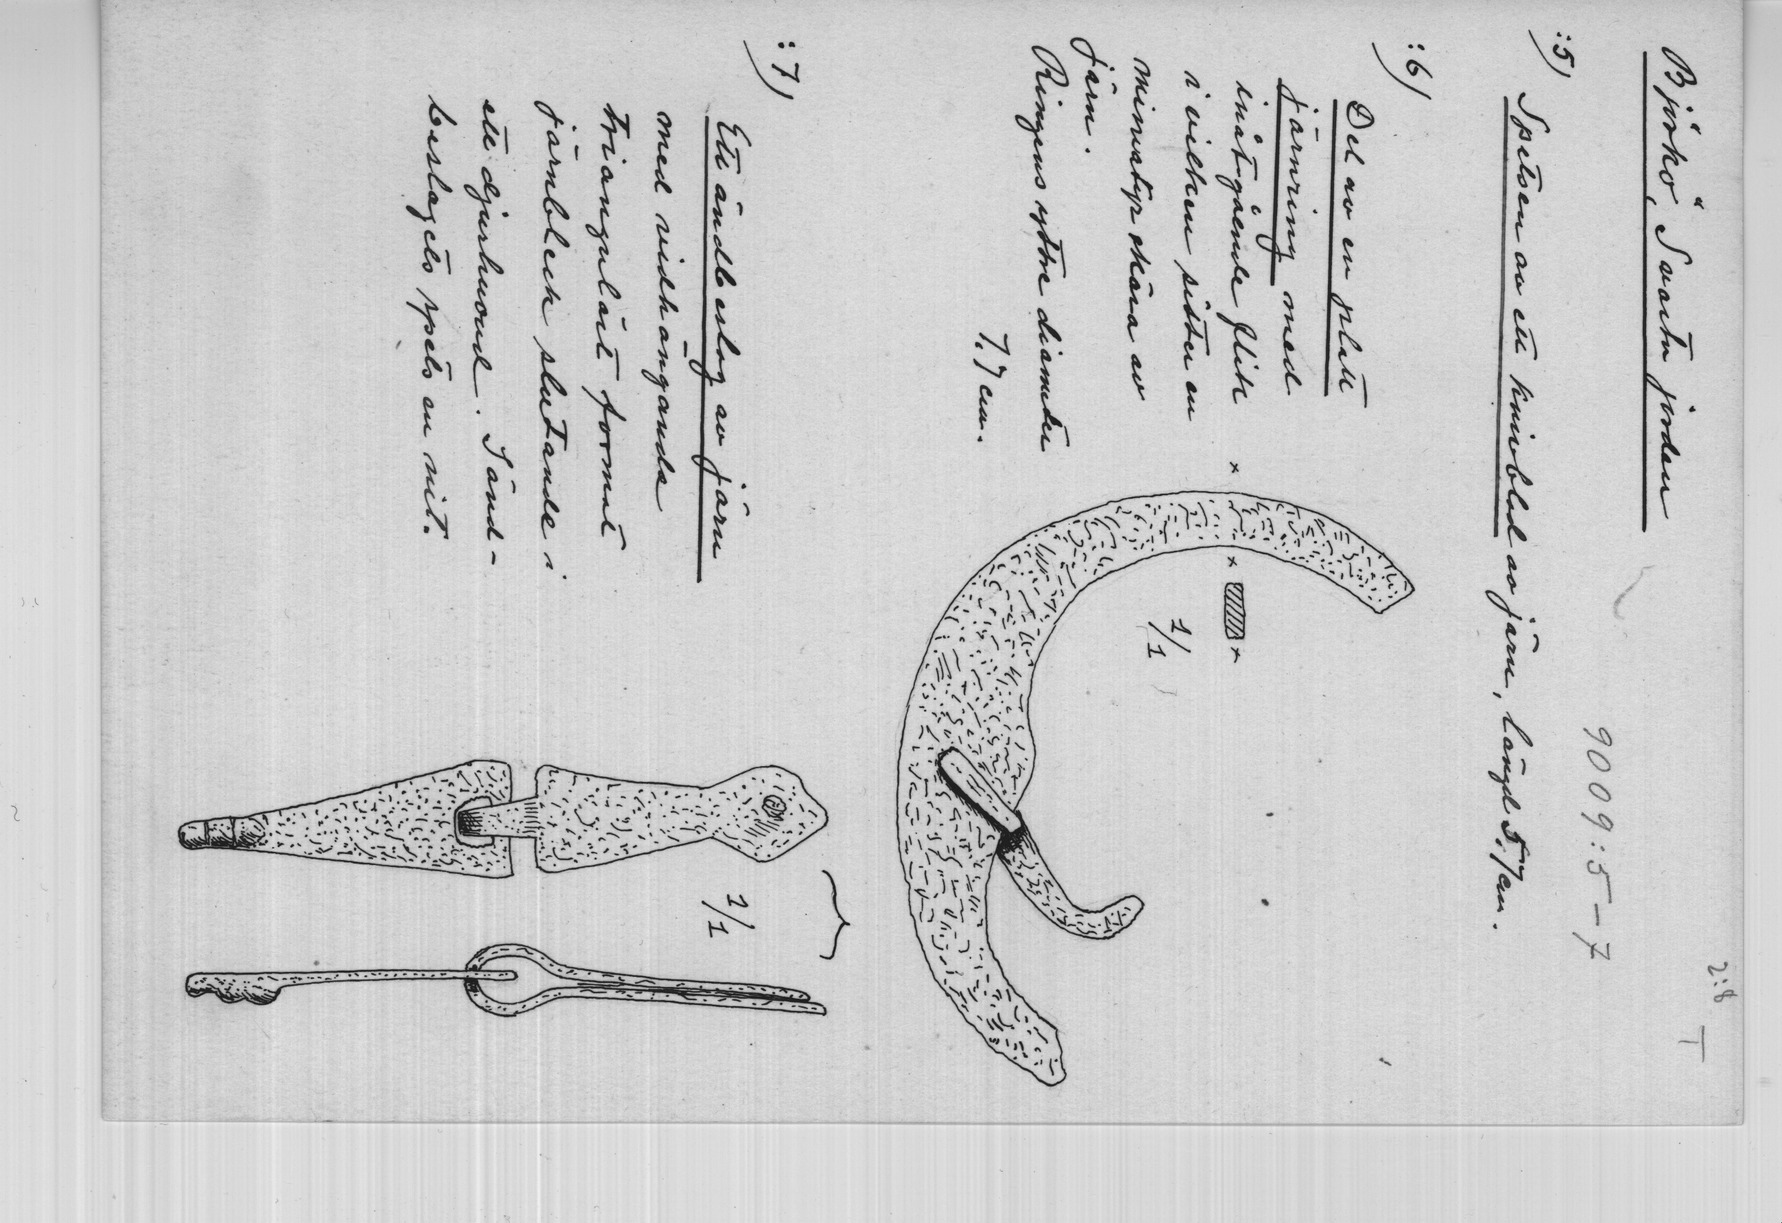 2:8 T
Björkö, Svarta jorden
9009:5-7
:5) Spetsen av ett knivblad av järn, längd 5.7 cm.
:6) Del av en platt
järnring med
inåtgående flik
i vilken sitter en
miniatyr skära av
järn.
Ringens yttre diameter
7.7 cm.
1/1
:7) Ett ändbeslag av järn
med vidhängande
triangulärt format
järnbleck slutande i
ett djurhuvud. I änd-
beslagets spets en nit.
1/1